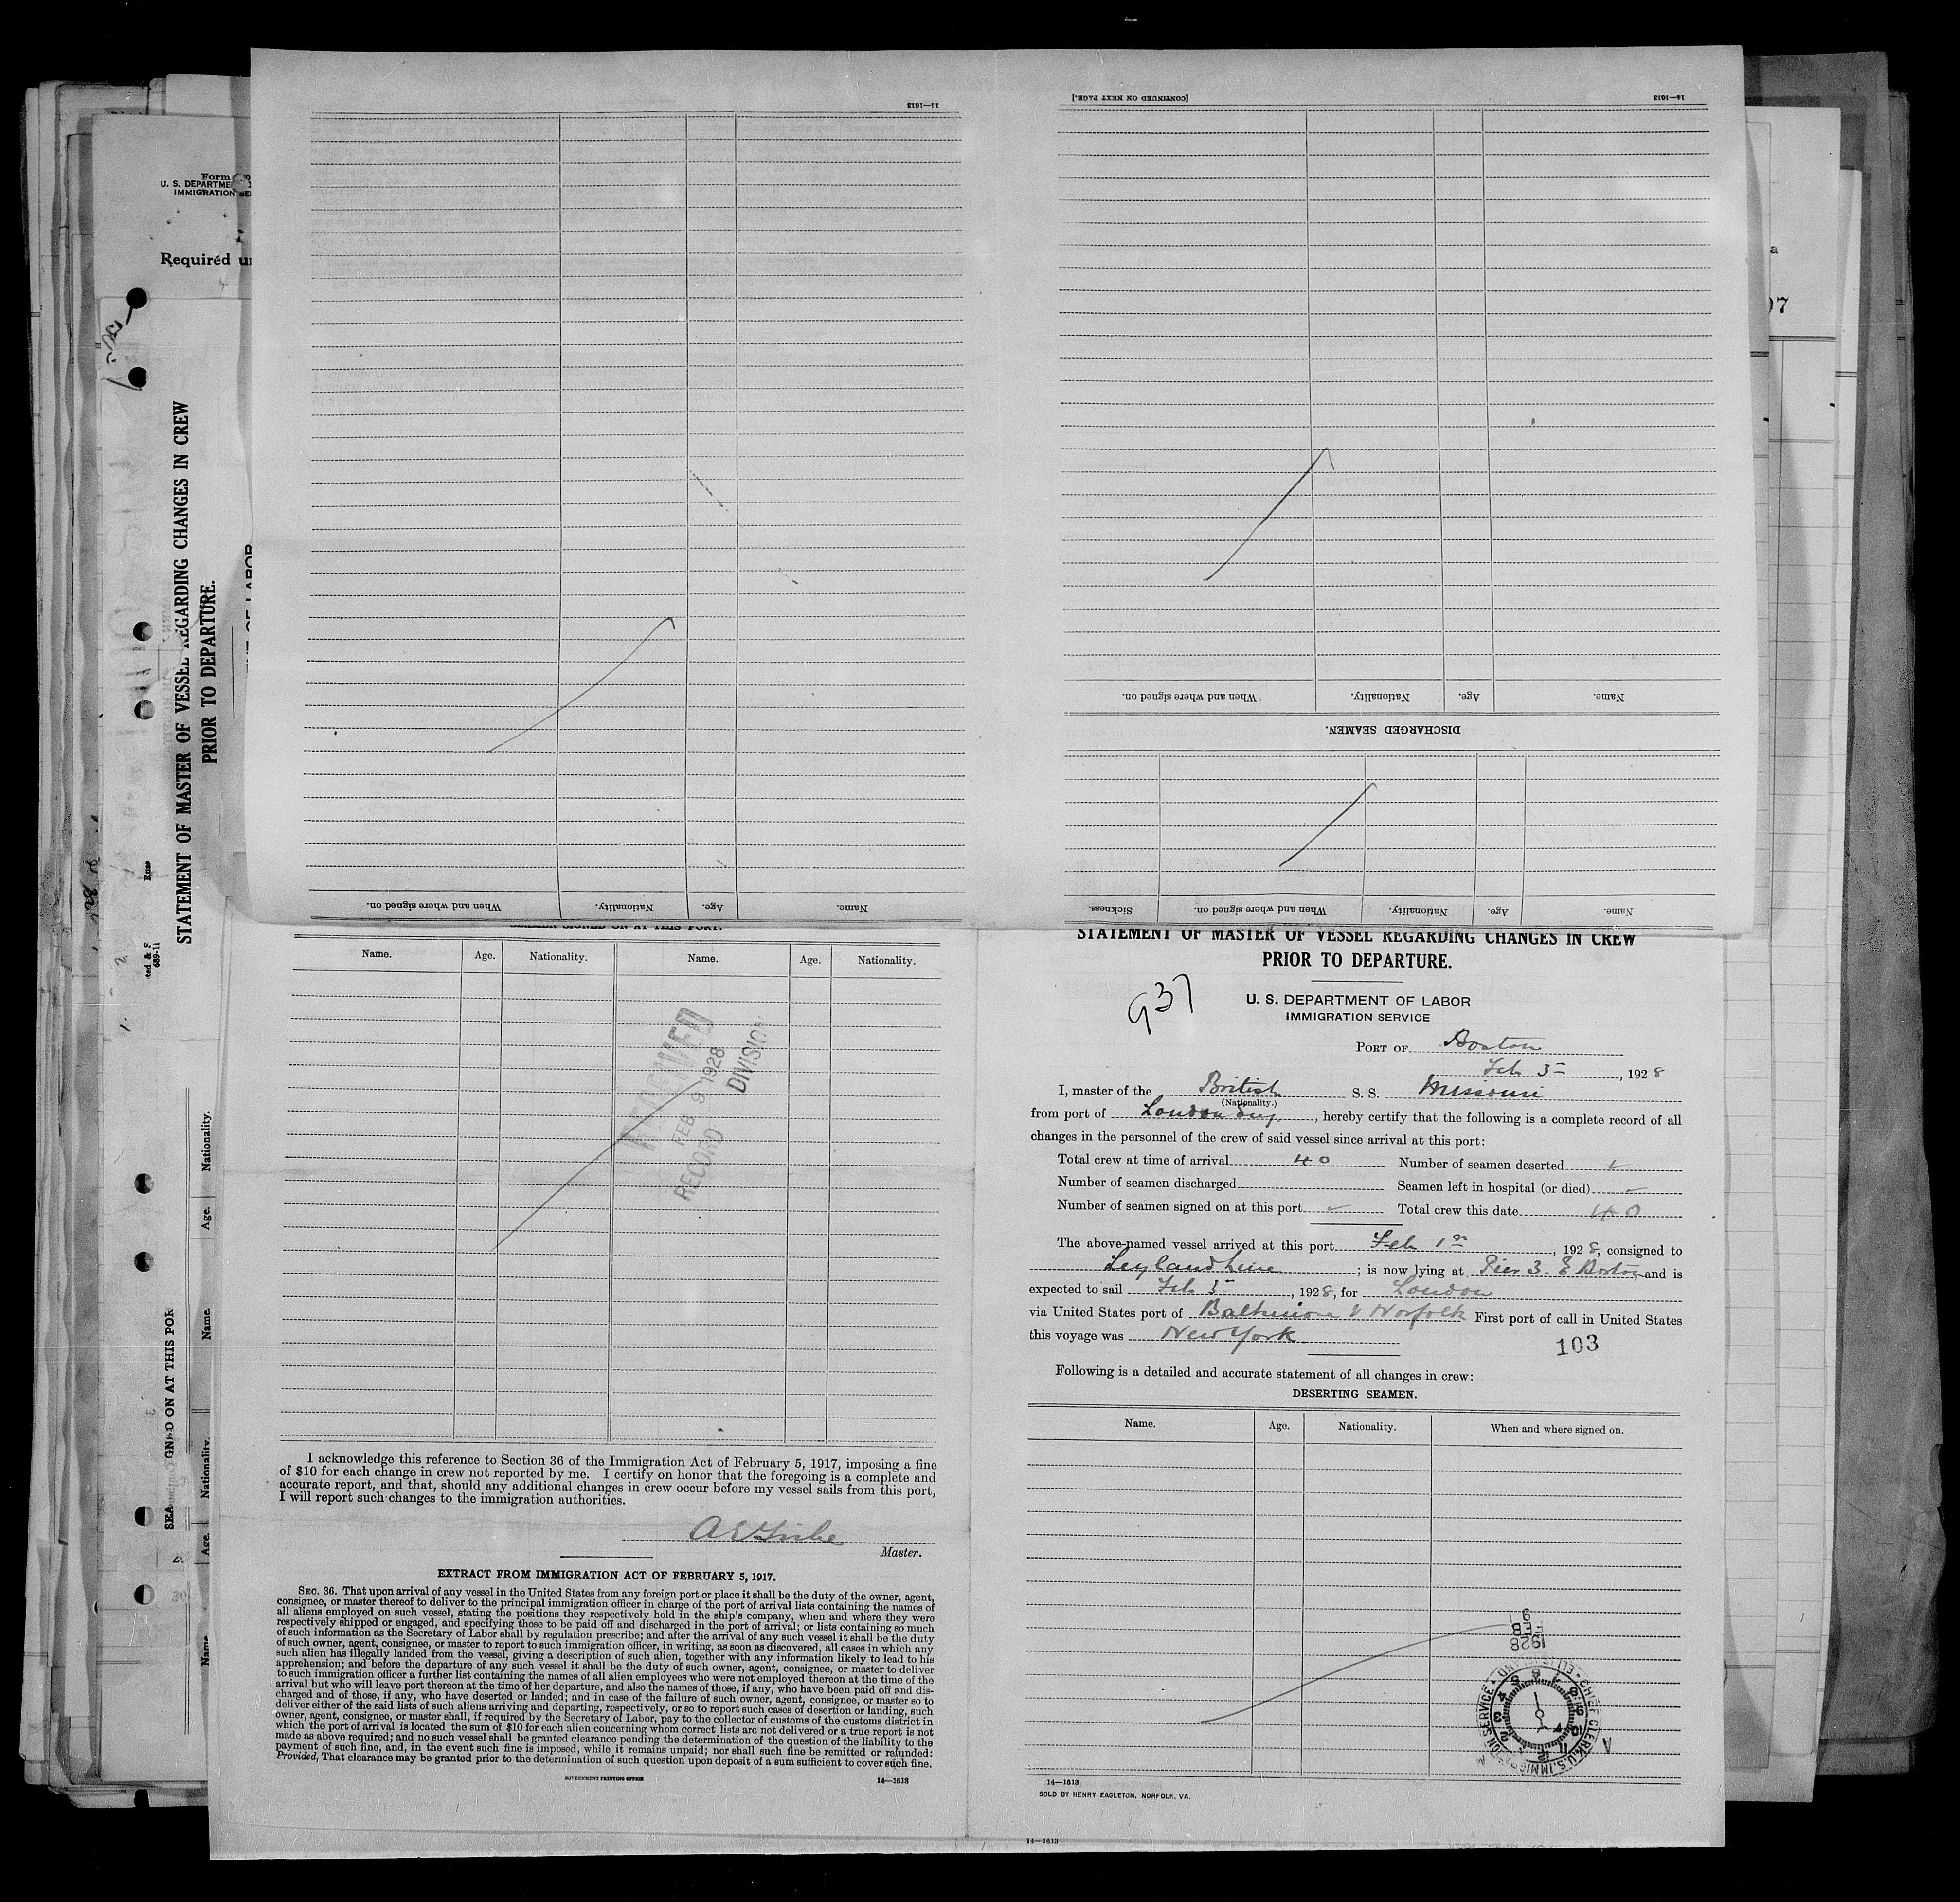 14—1613
[CONTINUED ON NEXT PAGE.]
14—1613
When and where signed on.
Nationality.
Age.
Name.
DISCHARGED SEAMEN.
Sickness.
When and where signed on.
Nationality.
Age.
Name.
When and where signed on.
Nationality.
Age.
Name.
Form
U. S. DEPARTME
IMMIGRATION SE
Required un
STATEMENT OF MASTER OF VESSEL REGARDING CHANGES IN CREW
PRIOR TO DEPARTURE.
OF LABOR
ted & F
689-11
Nationality.
Age.
Name.
SEA GNED ON AT THIS POR
Nationality.
Age.
Name
97
SEAMEN SIGNED ON AT THIS PORT.
Name. Age. Nationality. Name. Age. Nationality.
RECEIVED
FEB 9 1928
RECORD DIVISION
I acknowledge this reference to Section 36 of the Immigration Act of February 5, 1917, imposing a fine
of $10 for each change in crew not reported by me. I certify on honor that the foregoing is a complete and
accurate report, and that, should any additional changes in crew occur before my vessel sails from this port,
I will report such changes to the immigration authorities.
Master.
EXTRACT FROM IMMIGRATION ACT OF FEBRUARY 5, 1917.
SEC. 36. That upon arrival of any vessel in the United States from any foreign port or place it shall be the duty of the owner, agent,
consignee, or master thereof to deliver to the principal immigration officer in charge of the port of arrival lists containing the names of
all aliens employed on such vessel, stating the positions they respectively hold in the ship's company, when and where they were
respectively shipped or engaged, and specifying those to be paid off and discharged in the port of arrival; or lists containing so much
of such information as the Secretary of Labor shall by regulation prescribe; and after the arrival of any such vessel it shall be the duty
of such owner, agent, consignee, or master to report to such immigration officer, in writing, as soon as discovered, all cases in which any
such alien has illegally landed from the vessel, giving a description of such alien, together with any information likely to lead to his
apprehension; and before the departure of any such vessel it shall be the duty of such owner, agent, consignee, or master to deliver
to such immigration officer a further list containing the names of all alien employees who were not employed thereon at the time of the
arrival but who will leave port thereon at the time of her departure, and also the names of those, if any, who have been paid off and dis-
charged and of those, if any, who have deserted or landed; and in case of the failure of such owner, agent, consignee, or master so to
deliver either of the said lists of such aliens arriving and departing, respectively, or so to report such cases of desertion or landing, such
owner, agent, consignee, or master shall, if required by the Secretary of Labor, pay to the collector of customs of the customs district in
which the port of arrival is located the sum of $10 for each alien concerning whom correct lists are not delivered or a true report is not
made as above required; and no such vessel shall be granted clearance pending the determination of the question of the liability to the
payment of such fine, and, in the event such fine is imposed, while it remains unpaid; nor shall such fine be remitted or refunded:
Provided, That clearance may be granted prior to the determination of such question upon deposit of a sum sufficient to cover such fine.
GOVERNMENT PRINTING OFFICE 14—1613
STATEMENT OF MASTER OF VESSEL REGARDING CHANGES IN CREW
PRIOR TO DEPARTURE.
937
U. S. DEPARTMENT OF LABOR
IMMIGRATION SERVICE
PORT OF Boston
Feb 3, 1928
I, master of the British S. S. Missouri
(Nationality.)
from port of London Eng., hereby certify that the following is a complete record of all
changes in the personnel of the crew of said vessel since arrival at this port:
Total crew at time of arrival 40 Number of seamen deserted
Number of seamen discharged Seamen left in hospital (or died)
Number of seamen signed on at this port Total crew this date 40
The above-named vessel arrived at this port Feb 1st, 1928, consigned to
Leyland Line; is now lying at Pier 3. E Boston and is
expected to sail Feb 3, 1928, for London
via United States port of Baltimore & Norfolk First port of call in United States
this voyage was New York
103
Following is a detailed and accurate statement of all changes in crew:
DESERTING SEAMEN.
Name. Age. Nationality. When and where signed on.
1928
FEB
9
CHIEF CLERK, U.S. IMMIGRATION SERVICE
14—1613
SOLD BY HENRY EAGLETON, NORFOLK, VA.
14—1613